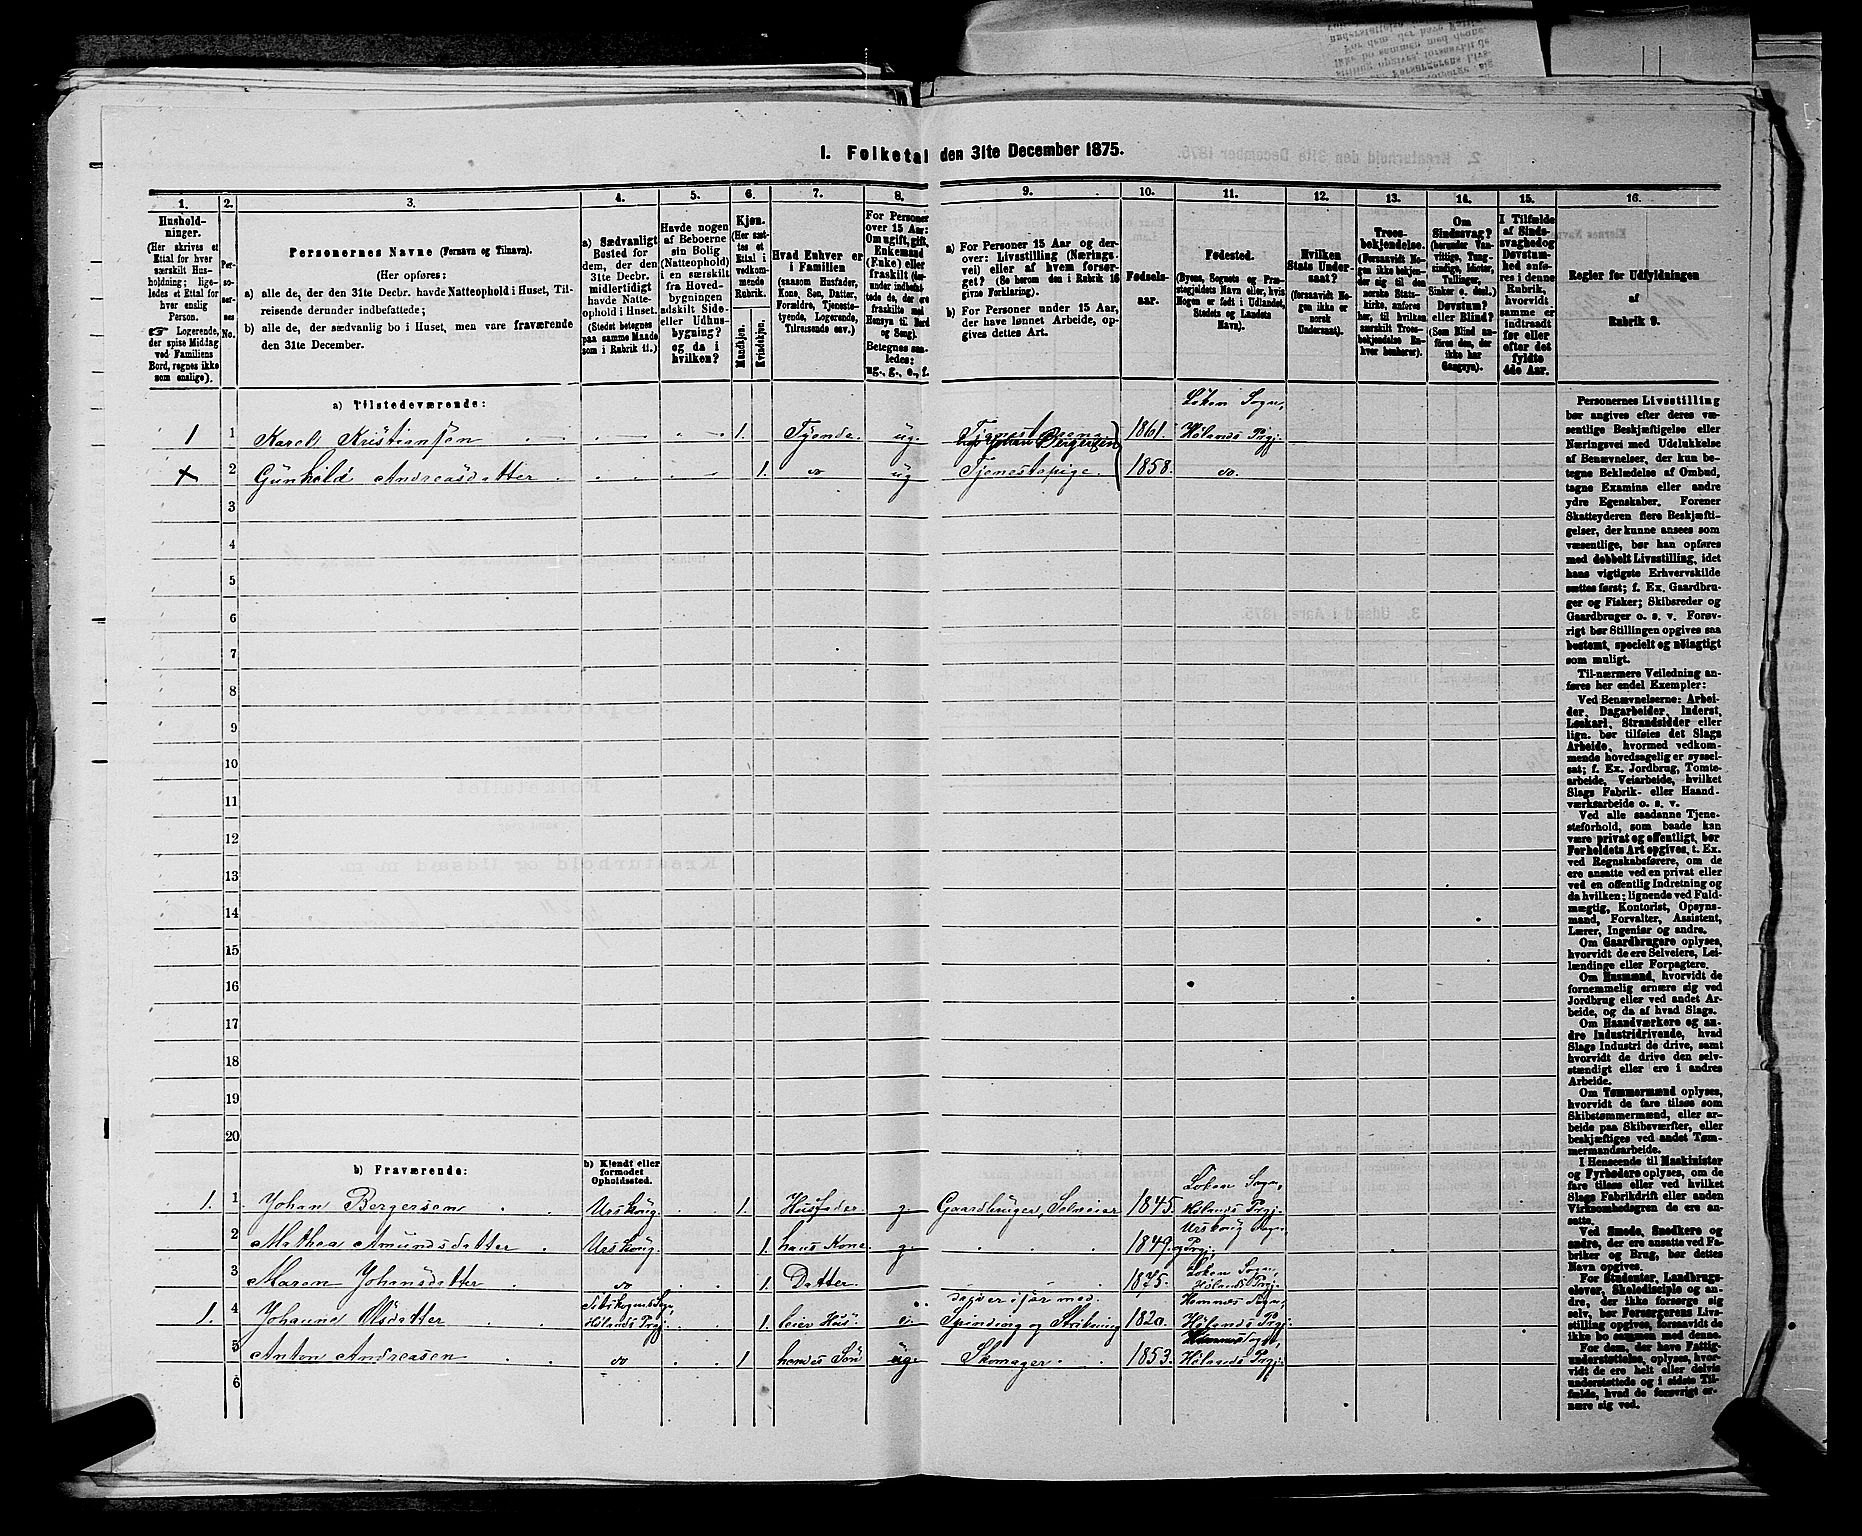 I. Folketal den 31te December 1875.
1. 2. 3. 4. 5. 6. 7. 8. 9. 10. 11. 12. 13. 14. 15. 16.
Husholdninger.
(Her skrives et
Ettal for hver
særskilt Husholdning;
ligeledes et Ettal for
hver enslig
Person.
☞ Logerende,
der spise Middag
ved Familiens
Bord, regnes ikke
som enslige).
Personernes No.
Personernes Navne (Fornavn og Tilnavn).
(Her opføres:
a) alle de, der den 31te Decbr. havde Natteophold i Huset, Tilreisende
derunder indbefattede;
b) alle de, der sædvanlig bo i Huset, men vare fraværende
den 31te December.
a) Sædvanligt
Bosted for
dem, der den
31te Decbr.
midlertidigt
havde Natteophold
i Huset.
(Stedet betegnes
paa samme Maade
som i Rubrik 11.)
Havde nogen
af Beboerne
sin Bolig
(Natteophold)
i en særskilt
fra Hovedbygningen
adskilt Side-
eller Udhusbygning?
og da i
hvilken?
Kjøn.
(Her sættes
et
Ettal i
vedkommende
Rubrik.
Mandkjøn.
Kvindekjøn.
Hvad Enhver er
i Familien
(saasom Husfader,
Kone, Søn, Datter,
Forældre, Tjenestetyende,
Logerende,
Tilreisende osv.)
For Personer
over 15 Aar:
Om ugift, gift,
Enkemand
(Enke) eller
fraskilt
Betegnes saaledes:
ug., g., e., f.
a) For Personer 15 Aar og derover:
Livsstilling (Næringsvei)
eller af hvem forsørget?
(Se herom den i Rubrik 16
givne Forklaring).
b) For Personer under 15 Aar,
der have lønnet Arbeide, opgives
dettes Art.
Fødselsaar.
Fødested.
(Byens, Sognets og Præstegjeldets
Navn eller, hvis
Nogen er født i Udlandet,
Stedets og Landets
Navn).
Hvilken
Stats Undersaat?
(forsaavidt Nogen
ikke er
norsk
Undersaat).
Troesbekjendelse.
(Forsaavidt Nogen
ikke bekjender
sig til den
norske Statskirke,
anføres
her, til hvilken
særskilt Troesbekjendelse
Enhver
henhører).
Om
Sindssvag?
(herunder Vanvittige,
Tungsindige,
Idioter,
Tullinger,
Sinker o. desl.)
Døvstum?
eller Blind?
(Som Blind anføres
den, der
ikke har
Gangsyn).
I Tilfælde
af Sindssvaghed og
Døvstumhed
anføres
i denne
Rubrik,
hvorvidt
samme er
indtraadt
før eller
efter det
fyldte
4de Aar.
Regler for Udfyldningen
af
Rubrik 9.
a) Tilstedeværende:
Løken Sogn,
1 1 Karel Kristiansen 1. Tyende ug. 1861. Hølands Prgj.
hos Johan Bergersen
2 Gunhild Andreasdatter 1. do ug Tjenestepige. 1858. do.
3
4
5
6
7
8
9
10
11
12
13
14
15
16
17
18
19
20
b) Fraværende:
b) Kjendt eller
formodet
Opholdssted.
Løken Sogn,
1. 1 Johan Bergersen Urskoug. 1. Husfader g. Gaardbruger, Selveier 1845. Hølands Prgj.
Urskoug Sogn
2 Mathea Amundsdatter Urskoug. 1. hans Kone. g. 1849. og Prgj.
Løken Sogn,
3 Maren Johansdatter do 1. Datter. 1875. Hølands Prgj.
Hemnes Sogn,
1. 4 Johanne Olsdatter Hølands Prgj. 1. leier Hus e. Spinding og Strikning 1820. Hølands Prgj.
Hemnes Sogn,
5 Anton Andreasen do 1 hendes Søn ug. Skomager. 1853. Hølands Prgj.
6
Personernes Livsstilling
bør angives efter deres væsentlige
Beskjæftigelse eller
Næringsvei med Udelukkelse
af Benævnelser, der kun betegne
Beklædelse af Ombud,
tagne Examina eller andre
ydre Egenskaber. Forener
Skatteyderen flere Beskjæftigelser,
der kunne ansees som
væsentlige, bør han opføres
med dobbelt Livsstilling, idet
hans vigtigste Erhvervskilde
sættes først; f. Ex. Gaardbruger
og Fisker; Skibsreder og
Gaardbruger o. s. v. Forøvrigt
bør Stillingen opgives saa
bestemt, specielt og nøiagtigt
som muligt.
Til nærmere Veiledning anføres
her endel Exempler:
Ved Benævnelserne: Arbeider,
Dagarbeider, Inderst,
Løskarl, Strandsidder eller
lign. bør tilføies det Slags
Arbeide, hvormed vedkommende
hovedsagelig er sysselsat;
f. Ex. Jordbrug, Tomtearbeide,
Veiarbeide, hvilket
Slags Fabrik- eller Haandværksarbeide
o. s. v.
Ved alle saadanne Tjenesteforhold,
som baade kan
være privat og offentligt, bør
Forholdets Art opgives, t. Ex.
ved Regnskabsførere, om de
ere ansatte ved en privat eller
ved en offentlig Indretning og
da hvilken; lignende ved Fuldmægtig,
Kontorist, Opsynsmand,
Forvalter, Assistent,
Lærer, Ingeniør og andre.
Om Gaardbrugere oplyses,
hvorvidt de ere Selveiere, Leilændinge
eller Forpagtere.
Om Husmænd, hvorvidt de
fornemmelig ernære sig ved
Jordbrug eller ved andet Arbeide,
og da af hvad Slags.
Om Haandværkere og andre
Industridrivende, hvad
Slags Industri de drive, samt
hvorvidt de drive den selvstændigt
eller ere i andres
Arbeide.
Om Tømmermænd oplyses,
hvorvidt de fare tilsøs som
Skibstømmermænd, eller arbeide
paa Skibsværfter, eller
beskjæftiges ved andet Tømmermandsarbeide.
I Henseende til Maskinister
og Fyrbødere oplyses, om de
fare tilsøs eller ved hvilket
Slags Fabrikdrift eller anden
Virksomhed de ere ansatte.
Ved Smede, Snedkere og
andre, der ere ansatte ved Fabriker
og Brug, bør dettes
Navn opgives.
For Studenter, Landbrugselever,
Skoledisciple og andre,
der ikke forsørge sig
selv, bør Forsørgerens Livsstilling
opgives, forsaavidt de
ikke bo sammen med denne.
For dem, der have Fattigunderstøttelse,
oplyses, hvorvidt
de ere helt eller delvis
understøttede og i sidste Tilfælde,
hvad de forøvrigt ernære
sig ved.